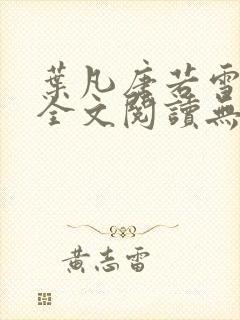 葉凡唐若雪
全文閱讀無
黃志雷